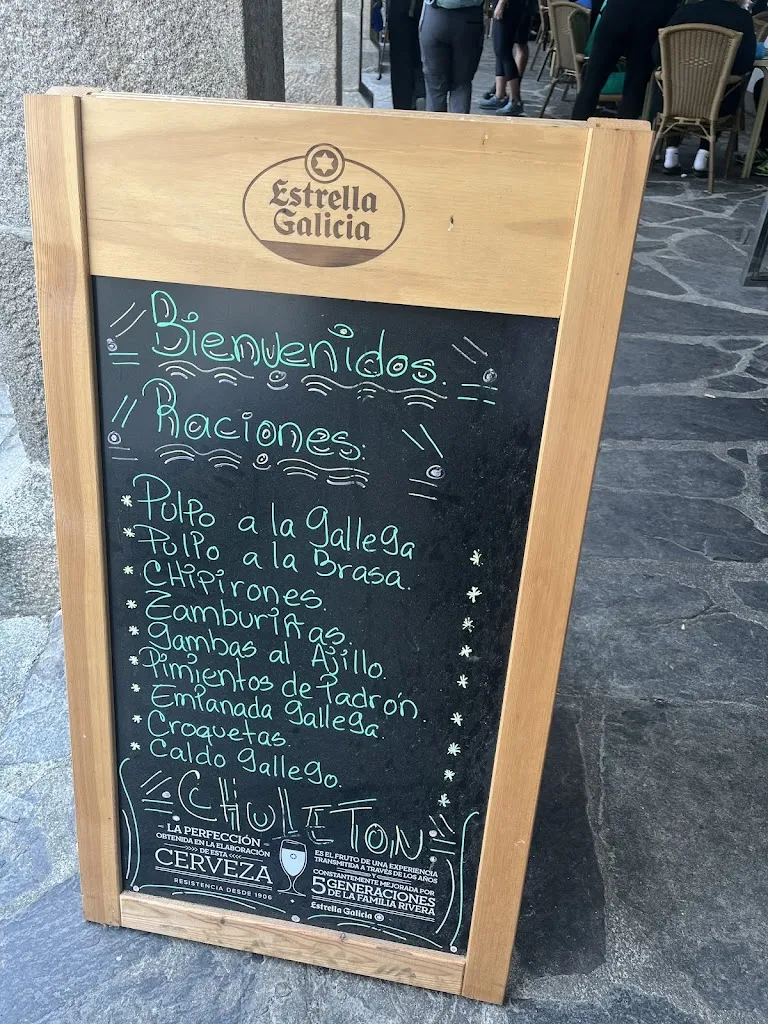 Estrella
Galicia
Bienvenidos.
Raciones:
* Pulpo a la gallega *
* Pulpo a la Brasa. *
* CHipirones. *
* Zamburiñas. *
* gambas al Ajillo. *
* Pimientos de Padrón. *
* Empanada gallega. *
* Croquetas. *
* Caldo gallego. *
CHuLETON
- LA PERFECCIÓN -
OBTENIDA EN LA ELABORACIÓN
>>>> DE ESTA <<<<
CERVEZA
RESISTENCIA DESDE 1906
ES EL FRUTO DE UNA EXPERIENCIA
TRANSMITIDA A TRAVÉS DE LOS AÑOS
Y
CONSTANTEMENTE MEJORADA POR
5 GENERACIONES
DE LA FAMILIA RIVERA
Estrella Galicia